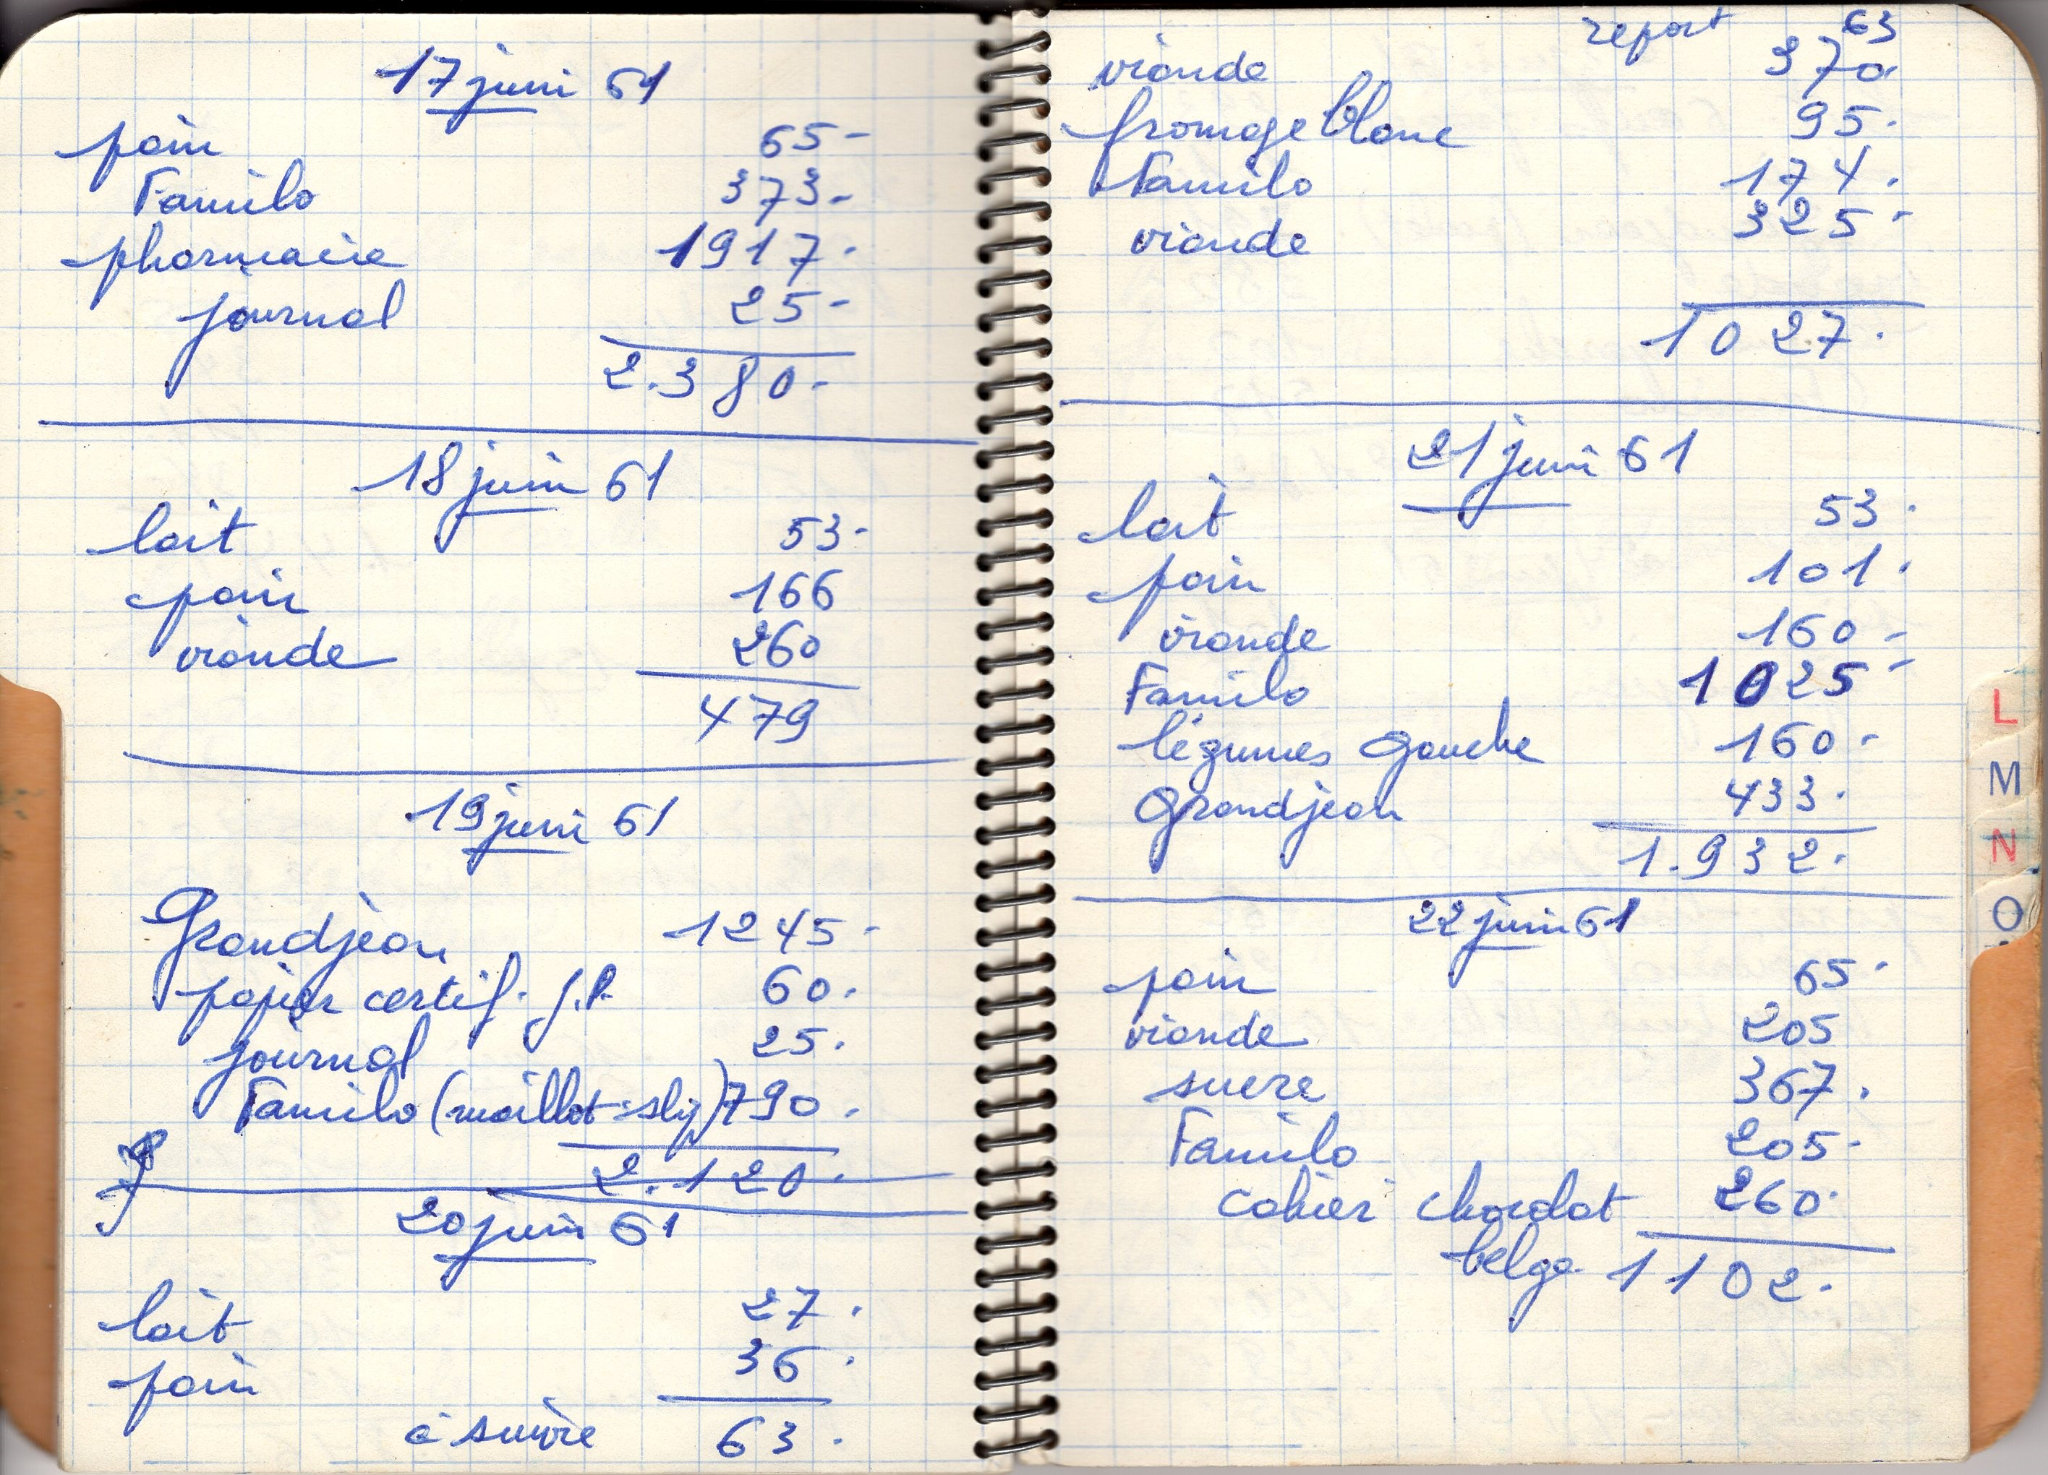 17 juin 61
pain 65-
Familo 373-
pharmacie 1917.
journal 25-
2.380-
18 juin 61
lait 53-
pain 166
viande 260
479
19 juin 61
Grandjean 1245-
papier certif. J.P. 60.
journal 25.
Familo (maillot=slip) 790.
2.120.
20 juin 61
lait 27.
pain 36.
à suivre 63.
report 63
viande 370.
fromage blanc 95.
Familo 174.
viande 325-
1027.
21 juin 61
lait 53.
pain 101.
viande 160-
Familo 1025-
légumes gauche 160-
Grandjean 433.
1.932.
22 juin 61
pain 65-
viande 205
sucre 367.
Familo 205-
cahier chocolat 260.
belge 1102.
L
M
N
O